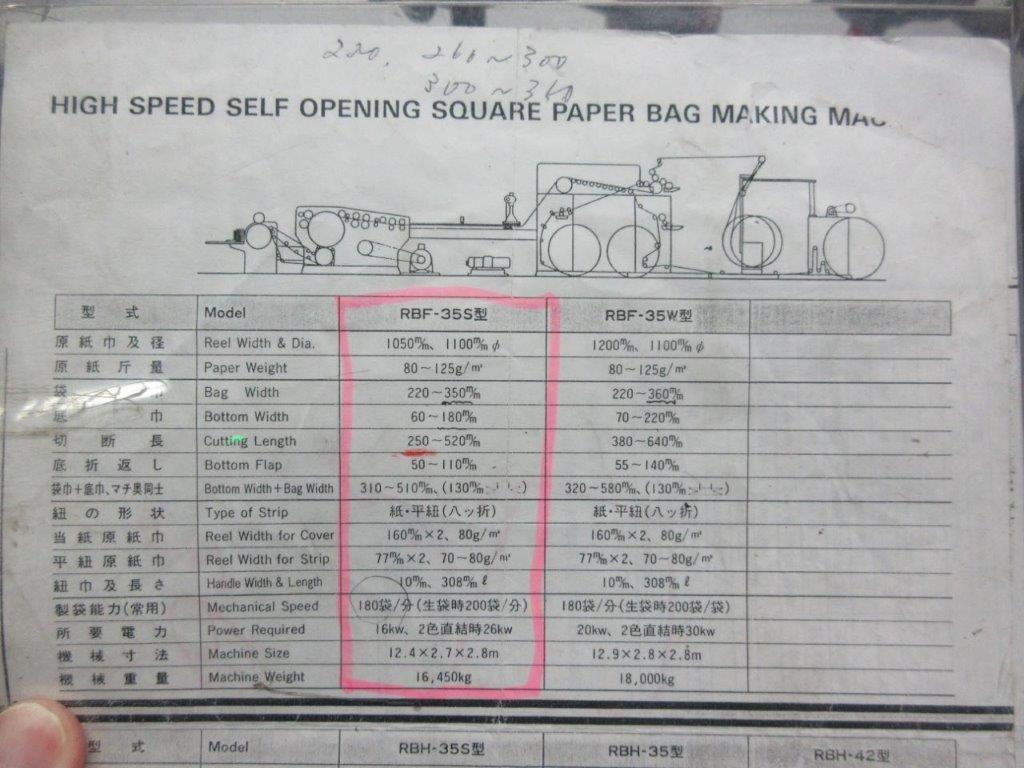 220, 260~300
300~360
HIGH SPEED SELF OPENING SQUARE PAPER BAG MAKING
型式 Model RBF-35S型 RBF-35W型
原紙巾及径 Reel Width & Dia. 1050㎜、1100㎜φ 1200㎜、1100㎜φ
原紙斤量 Paper Weight 80~125g/㎡ 80~125g/㎡
袋巾 Bag Width 220~350㎜ 220~360㎜
底巾 Bottom Width 60~180㎜ 70~220㎜
切断長 Cutting Length 250~520㎜ 380~640㎜
底折返し Bottom Flap 50~110㎜ 55~140㎜
袋巾+底巾、マチ奥同士 Bottom Width+Bag Width 310~510㎜、(130㎜ 320~580㎜、(130㎜
紐の形状 Type of Strip 紙・平紐(八ッ折) 紙・平紐(八ッ折)
当紙原紙巾 Reel Width for Cover 160㎜×2、80g/㎡ 160㎜×2、80g/㎡
平紐原紙巾 Reel Width for Strip 77㎜×2、70~80g/㎡ 77㎜×2、70~80g/㎡
紐巾及長さ Handle Width & Length 10㎜、308㎜ℓ 10㎜、308㎜ℓ
製袋能力(常用) Mechanical Speed 180袋/分(生袋時200袋/分) 180袋/分(生袋時200袋/袋)
所要電力 Power Required 16kw、2色直結時26kw 20kw、2色直結時30kw
機械寸法 Machine Size 12.4×2.7×2.8m 12.9×2.8×2.8m
機械重量 Machine Weight 16,450kg 18,000kg
型式 Model RBH-35S型 RBH-35型 RBH-42型